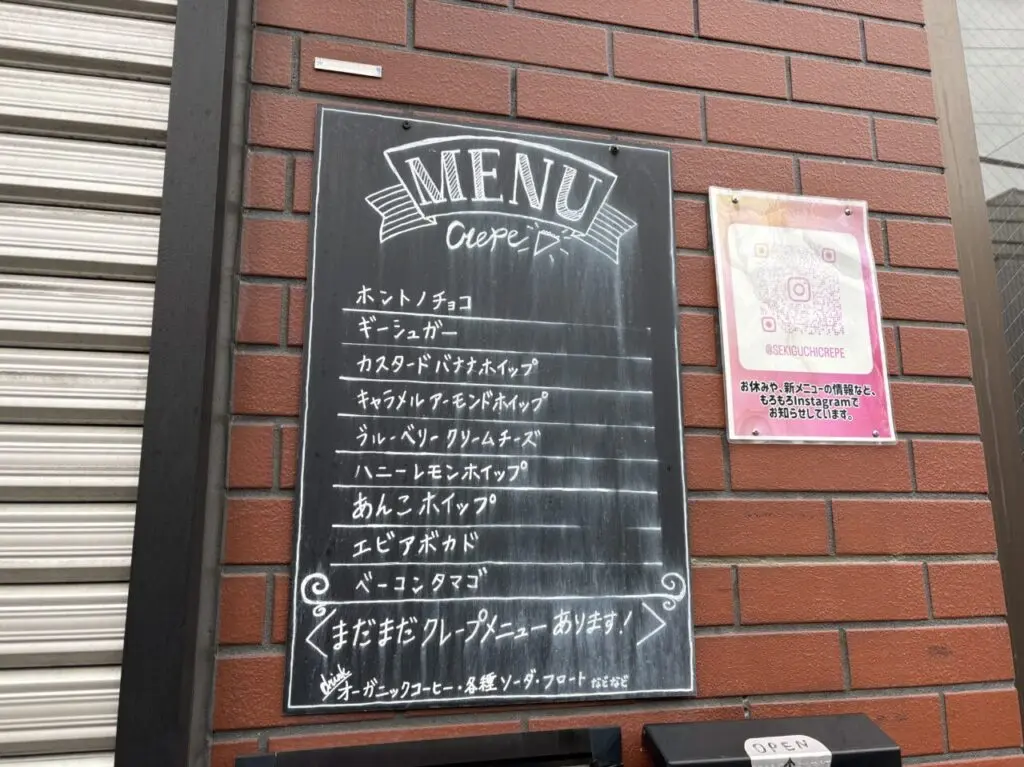 MENU
Crepe
ホントノチョコ
ギーシュガー
カスタードバナナホイップ
キャラメルアーモンドホイップ
ブルーベリークリームチーズ
ハニーレモンホイップ
あんこホイップ
エビアボカド
ベーコンタマゴ
まだまだクレープメニューあります!
drink
オーガニックコーヒー・各種ソーダ・フロートなどなど
@SEKIGUCHICREPE
お休みや、新メニューの情報など、
もろもろInstagramで
お知らせしています。
OPEN